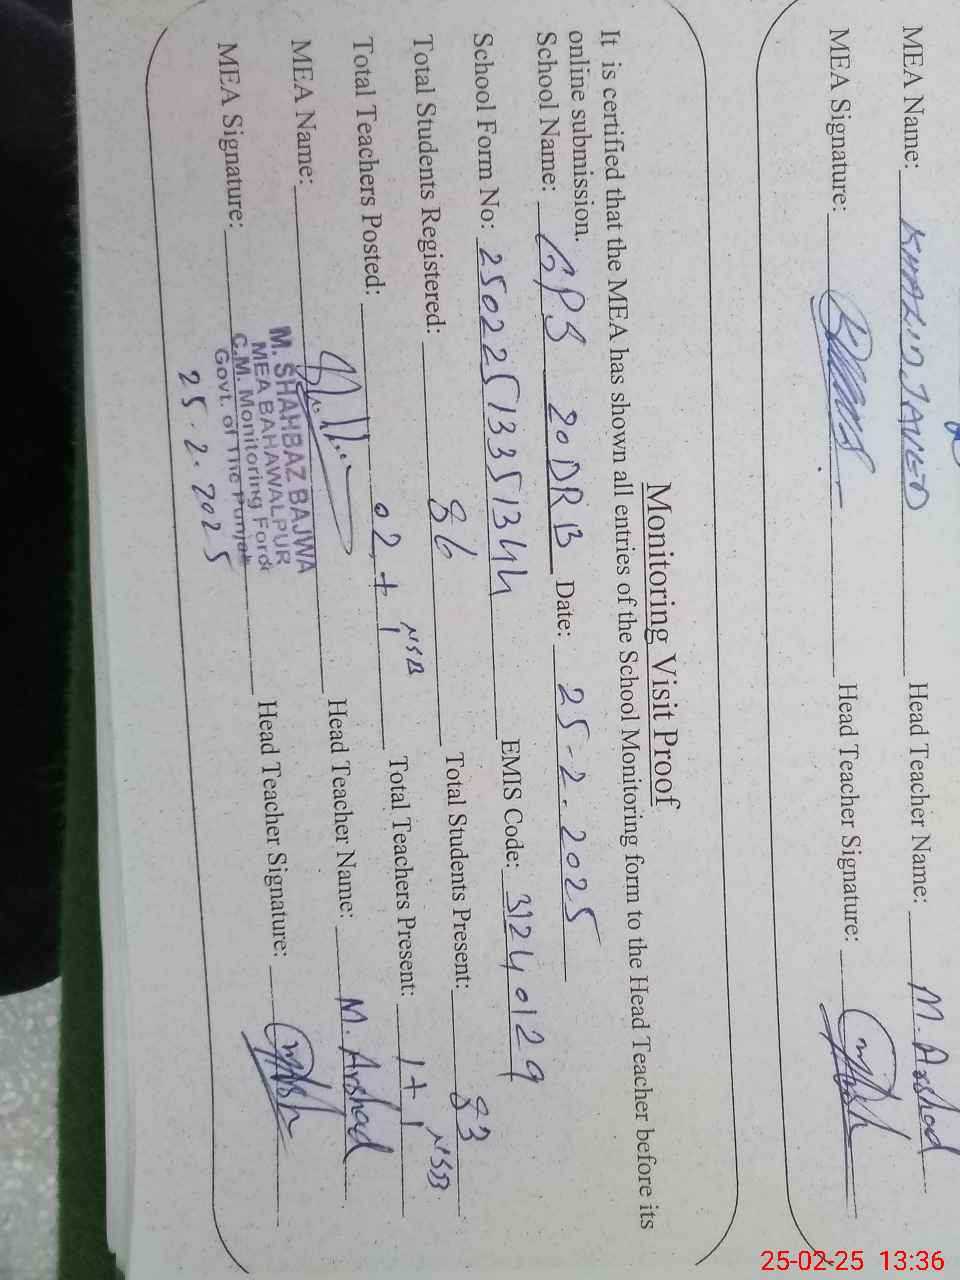 MEA Name: KHALID JAVED Head Teacher Name: M. Arshad
MEA Signature: Head Teacher Signature:
Monitoring Visit Proof
It is certified that the MEA has shown all entries of the School Monitoring form to the Head Teacher before its
online submission.
School Name: GPS 20 DRB Date: 25-2-2025
School Form No: 25022513351344 EMIS Code: 31240129
Total Students Registered: 86 Total Students Present: 83
Total Teachers Posted: 02 + 1 NSB Total Teachers Present: 1 + 1 NSB
MEA Name: Head Teacher Name: M. Arshad
MEA Signature: Head Teacher Signature:
M. SHAHBAZ BAJWA
MEA BAHAWALPUR
C.M. Monitoring Force
Govt. of The Punjab
25.2.2025
25-02-25 13:36